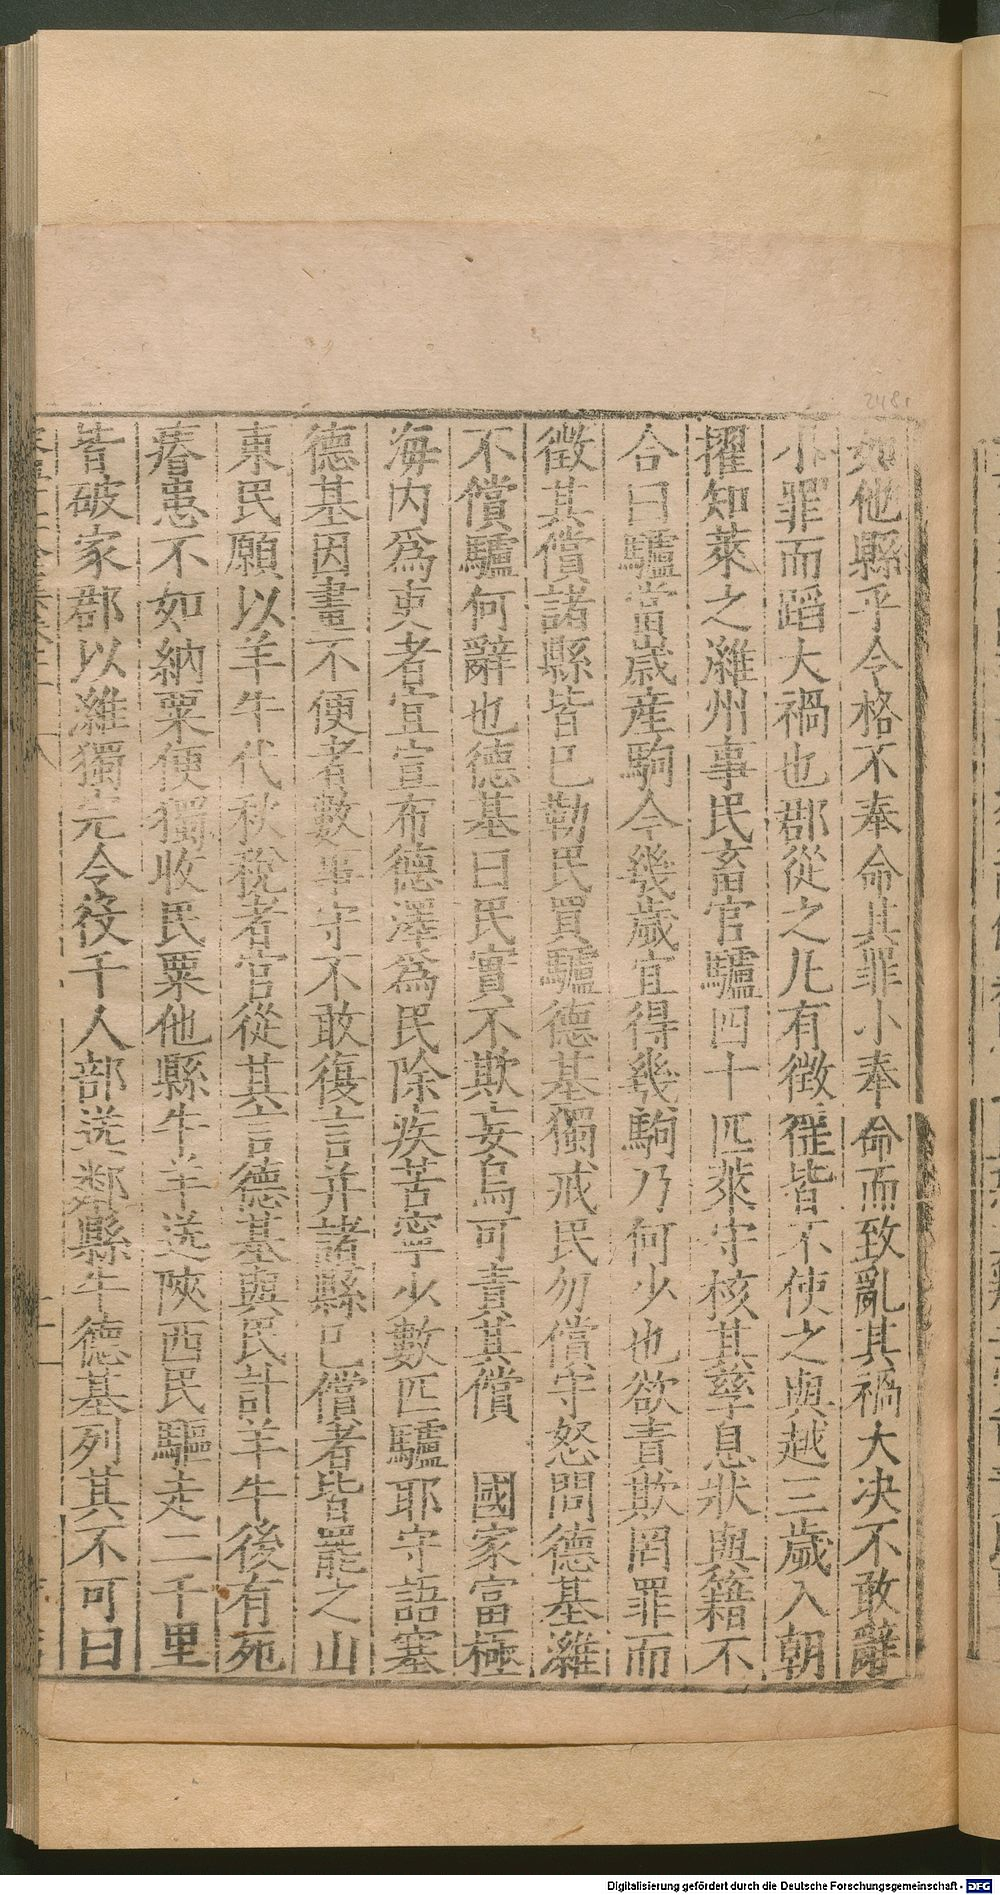 如他縣乎令格不奉命其罪小奉命而致亂其禍大决不敢辭
小罪而蹈大禍也郡從之凡有徵徭皆不使之與越三歲入朝
擢知萊之濰州事民畜官驢四十匹萊守核其孳息狀與籍不
合曰驢當歲産駒今幾歲宜得幾駒乃何少也欲責欺罔罪而
徵其償諸縣皆已勒民買驢德基獨戒民勿償守怒問德基濰
不償驢何辭也德基曰民實不欺妄烏可責其償　國家富極
海内爲吏者宜宣布德澤爲民除疾苦寧少數匹驢耶守語塞
德基因畫不便者數事守不敢復言并諸縣已償者皆罷之山
東民願以羊牛代秋稅者官從其言德基與民計羊牛後有死
瘠患不如納粟便獨收民粟他縣牛羊送陝西民驅走二千里
皆破家郡以濰獨完令役千人部送鄰縣牛德基列其不可曰
2481
Digitalisierung gefördert durch die Deutsche Forschungsgemeinschaft - DFG